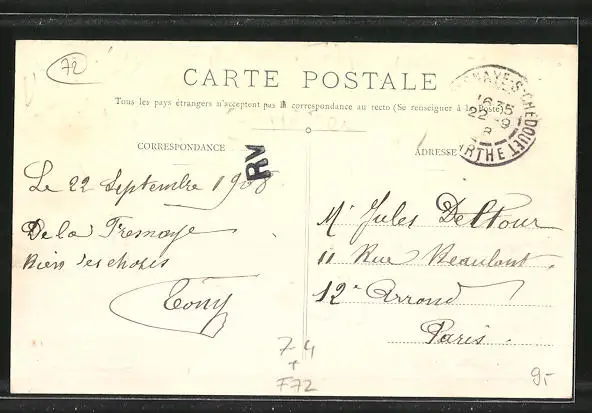 72
CARTE POSTALE
Tous les pays étrangers n'acceptent pas la correspondance au recto (Se renseigner à la Poste)
16 35
22 -9
CORRESPONDANCE
ADRESSE
RTHE
RV
Le 22 Septembre 1908
De la Fresnaye
Bien des choses
Tony
Mr Jules Deltour
11 Rue Beaulont
12e Arrond
Paris
7-4
+
F72
9.-